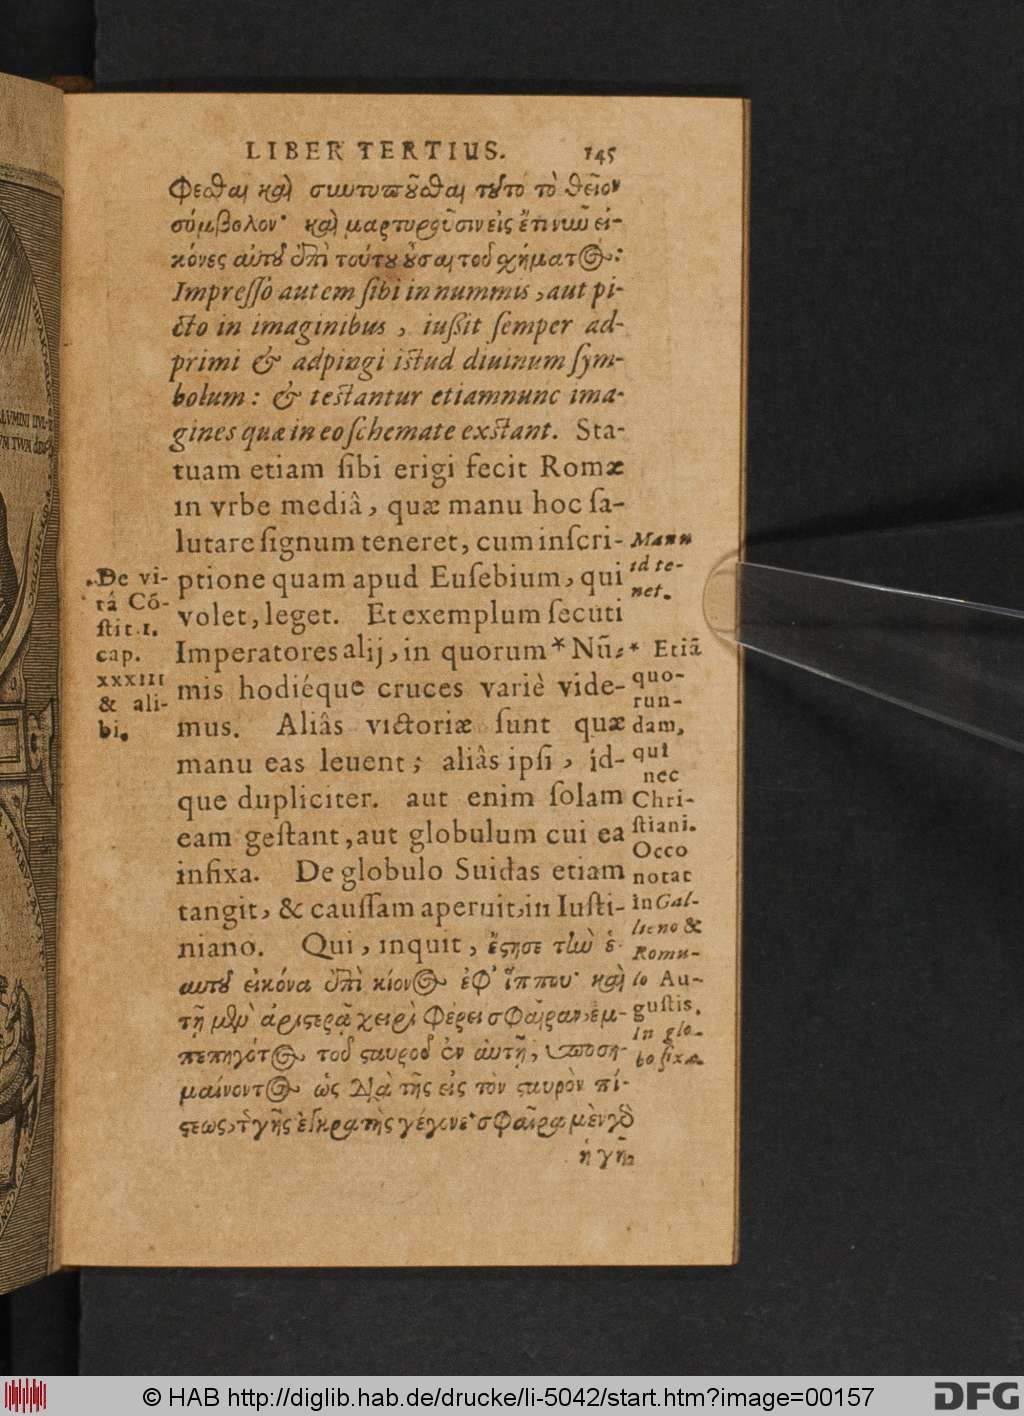 LIBER TERTIUS. 145
φεσθαι καὶ συντυποῦσθαι τοῦτο τὸ θεῖον
σύμβολον· καὶ μαρτυροῦσιν εἰς ἔτι νῦν εἰ-
κόνες αὐτοῦ ἐπὶ τούτου οὖσαι τοῦ σχήματος:
Impreſſo autem ſibi in nummis, aut pi-
cto in imaginibus, iußit ſemper ad-
primi & adpingi iſtud diuinum ſym-
bolum: & teſtantur etiamnunc ima-
gines quæ in eo ſchemate exſtant. Sta-
tuam etiam ſibi erigi fecit Romæ
in vrbe mediâ, quæ manu hoc ſa-
lutare ſignum teneret, cum inſcri-
ptione quam apud Euſebium, qui
volet, leget. Et exemplum ſecuti
Imperatores alij, in quorum * Nũ-
mis hodiéque cruces variè vide-
mus. Aliâs victoriæ ſunt quæ
manu eas leuent; aliâs ipſi, id-
que dupliciter. aut enim ſolam
eam geſtant, aut globulum cui ea
infixa. De globulo Suidas etiam
tangit, & cauſſam aperuit, in Iuſti-
niano. Qui, inquit, ἔστησε τὴν ἑ-
αυτοῦ εἰκόνα ἐπὶ κίονος ἐφ' ἵππου· καὶ
τῇ μὲν ἀριστερᾷ χειρὶ φέρει σφαῖραν, ἐμ-
πεπηγότος τοῦ σταυροῦ ἐν αὐτῇ, ὑποση-
μαίνοντος ὡς διὰ τῆς εἰς τὸν σταυρὸν πί-
στεως, τῆς γῆς ἐγκρατὴς γέγονε· σφαῖρα μὲν γὸ
ἡ γῆ
De vi-
tâ Cõ-
ſtit. 1.
cap.
XXXIII
& ali-
bi.
Manu
id te-
net.
* Etiã
quo-
run-
dam,
qui
nec
Chri-
ſtiani.
Occo
notat
in Gal-
lieno &
Romu-
lo Au-
guſtis.
In glo-
bo fixæ
© HAB http://diglib.hab.de/drucke/li-5042/start.htm?image=00157
DFG